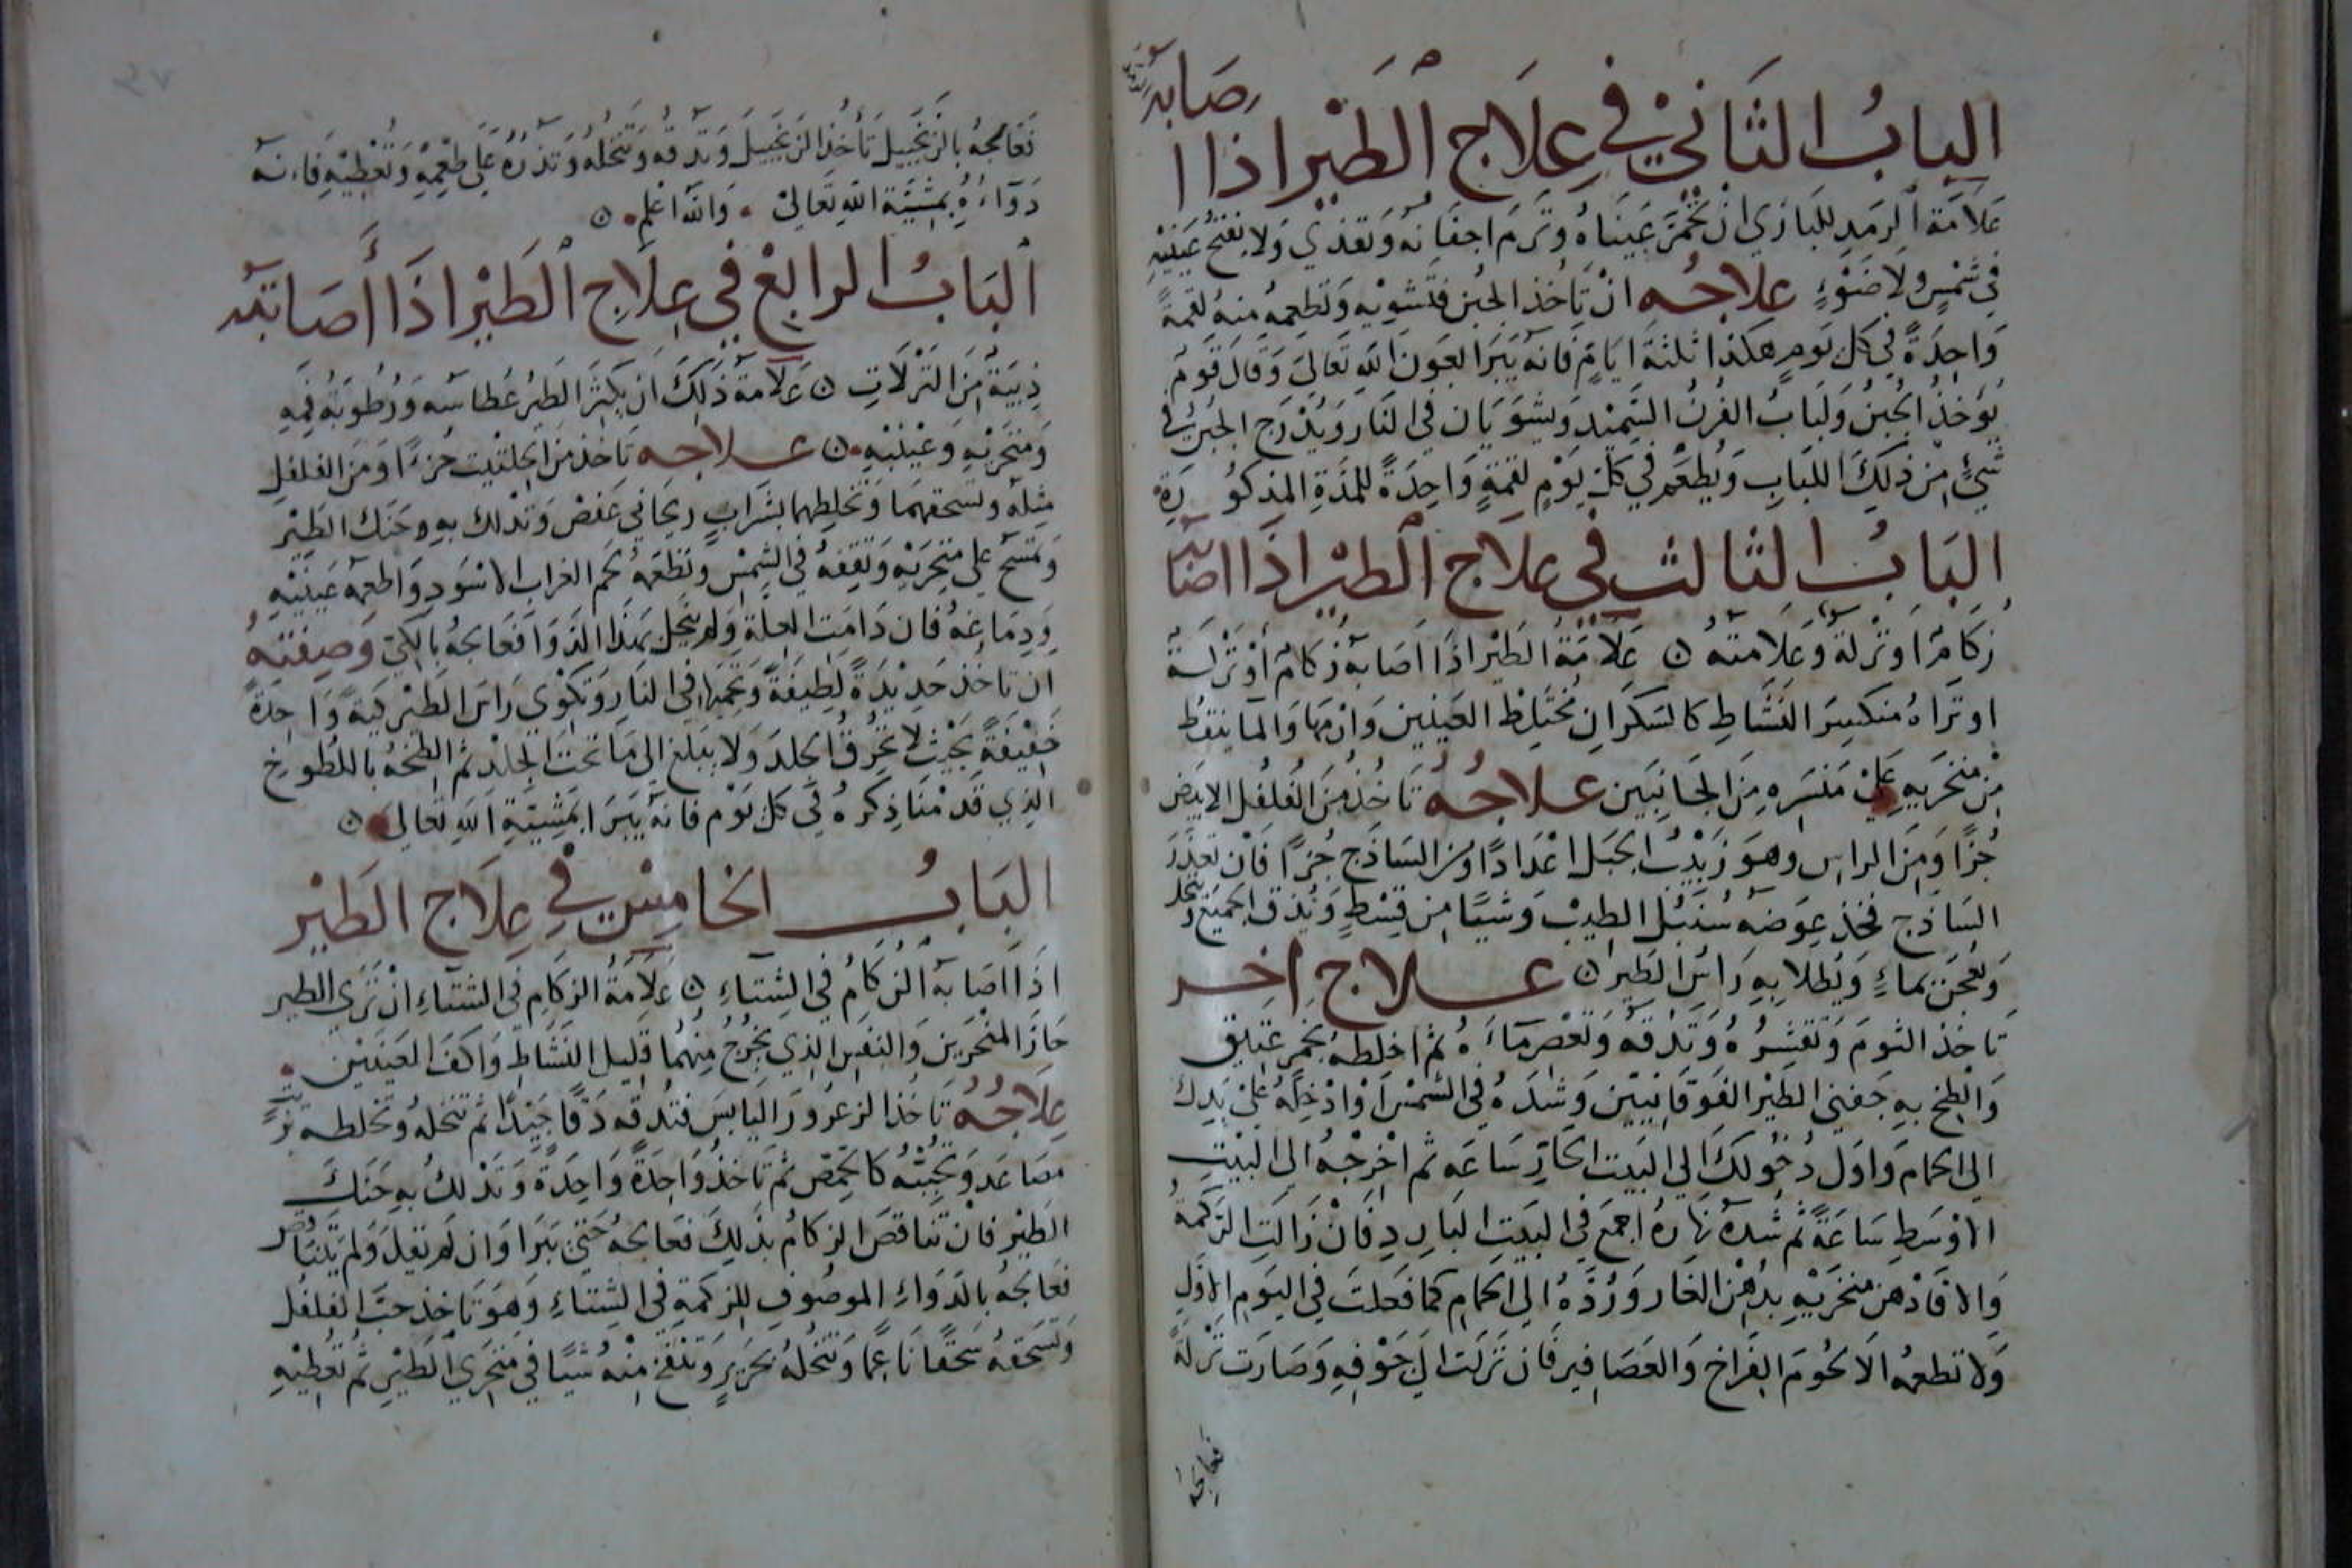 الباب الثاني في علاج الطير اذا ا صابه رمد
علامة الرمد للبازي ان تحمر عيناه وترم اجفانه وتقذي ولا يفتح عينيه
في شمس ولا ضوء علاجه ان تاخذ الجبن فتشويه وتطعمه منه لقمة
واحدة في كل يوم هكذا ثلثة ايام فانه يبرا بعون الله تعالى وقال قوم
يوخذ الجبن ولباب الفرن السميد ويشويان في النار ويدرج الجبن في
شيء من ذلك اللباب ويطعم في كل يوم لقمة واحدة للمدة المذكورة
الباب الثالث في علاج الطير اذا اصابه
زكام او نزلة وعلامته ۞ علامة الطير اذا اصابه زكام او نزلة
او تراه منكسر النشاط كالسكران مختلط العينين وان مها والما ينقط
من منخريه على منسره من الجانبين علاجه تاخذ من الفلفل الابيض
جزا ومن الراس وهو زبيب الجبل اعدادا ومن الساذج جزا فان تعذر
الساذج فخذ عوضه سنبل الطيب وشيا من قسط ويدق الجميع وينخل
ويعجن بماء ويطلا به راس الطير ۞ علاج اخر
تاخذ الثوم وتقشره وتدقه وتعصر ماءه ثم اخلطه بخمر عتيق
والطخ به جفني الطير الفوقانيين وشده في الشمس او ادخله على يدك
الى الحمام واول دخولك الى البيت الحار ساعه ثم اخرجه الى البيت
الاوسط ساعة ثم شده نهاره اجمع في البيت البارد فان زالت الزكمة
والا فادهن منخريه بدهن الغار ورده الى الحمام كما فعلت في اليوم الاول
ولا تطعمه الا لحوم الفراخ والعصافير فان نزلت الى جوفه وصارت نزلة
فعالجه
فعالجه بالزنجبيل تأخذ الزنجبيل وتدقه وتنخله وتذره على طعمه وتعطيه فانه
دواءه بمشيئة الله تعالى والله اعلم ۞
الباب الرابع في علاج الطير اذا أصابته
ذبية من النزلات ۞ علامة ذلك ان يكثر الطير عطاسه ورطوبة فمه
ومنخريه وعينيه ۞ علاجه تاخذ من الحلتيت جزءا ومن الفلفل
مثله وتسحقهما وتخلطهما بشراب ريحاني عفص وتدلك به حنك الطير
وتمسح على منخريه وتقفه في الشمس وتطعمه لحم الغراب الاسود واطعمه عينيه
ودماغه فان دامت العلة ولم تنجل بهذا الدوا فعالجه بالكي وصفته
ان تاخذ حديدة لطيفة وتحميها في النار وتكوي راس الطير كية واحدة
خفيفة بحيث لا تحرق الجلد ولا يبلغ الى ما تحت الجلد ثم الطخه باللطوخ
الذي قدمنا ذكره في كل يوم فانه يبرا بمشيئة الله تعالى ۞
الباب الخامس في علاج الطير
اذا اصابه الزكام في الشتاء ۞ علامة الزكام في الشتاء ان ترى الطير
حاز المنخرين والنفس الذي يخرج منهما قليل النشاط واكف العينين
علاجه تاخذ الزعرور اليابس فتدقه دقا جيدا ثم تنخله وتخلطه
مصاعد وتحببه كالحمص ثم تاخذ واحدة واحدة وتدلك به حنك
الطير فان تناقص الزكام بذلك فعالجه حتى يبرا وان لم يقل ولم يتناقص
فعالجه بالدواء الموصوف للزكمة في الشتاء وهو تاخذ حب الفلفل
وتسحقه سحقا ناعما وتنخله بحرير وتنفخ منه شيا في منخري الطير ثم تعطيه